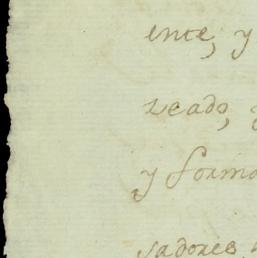 ente, y
leado, y
y forma
sadores